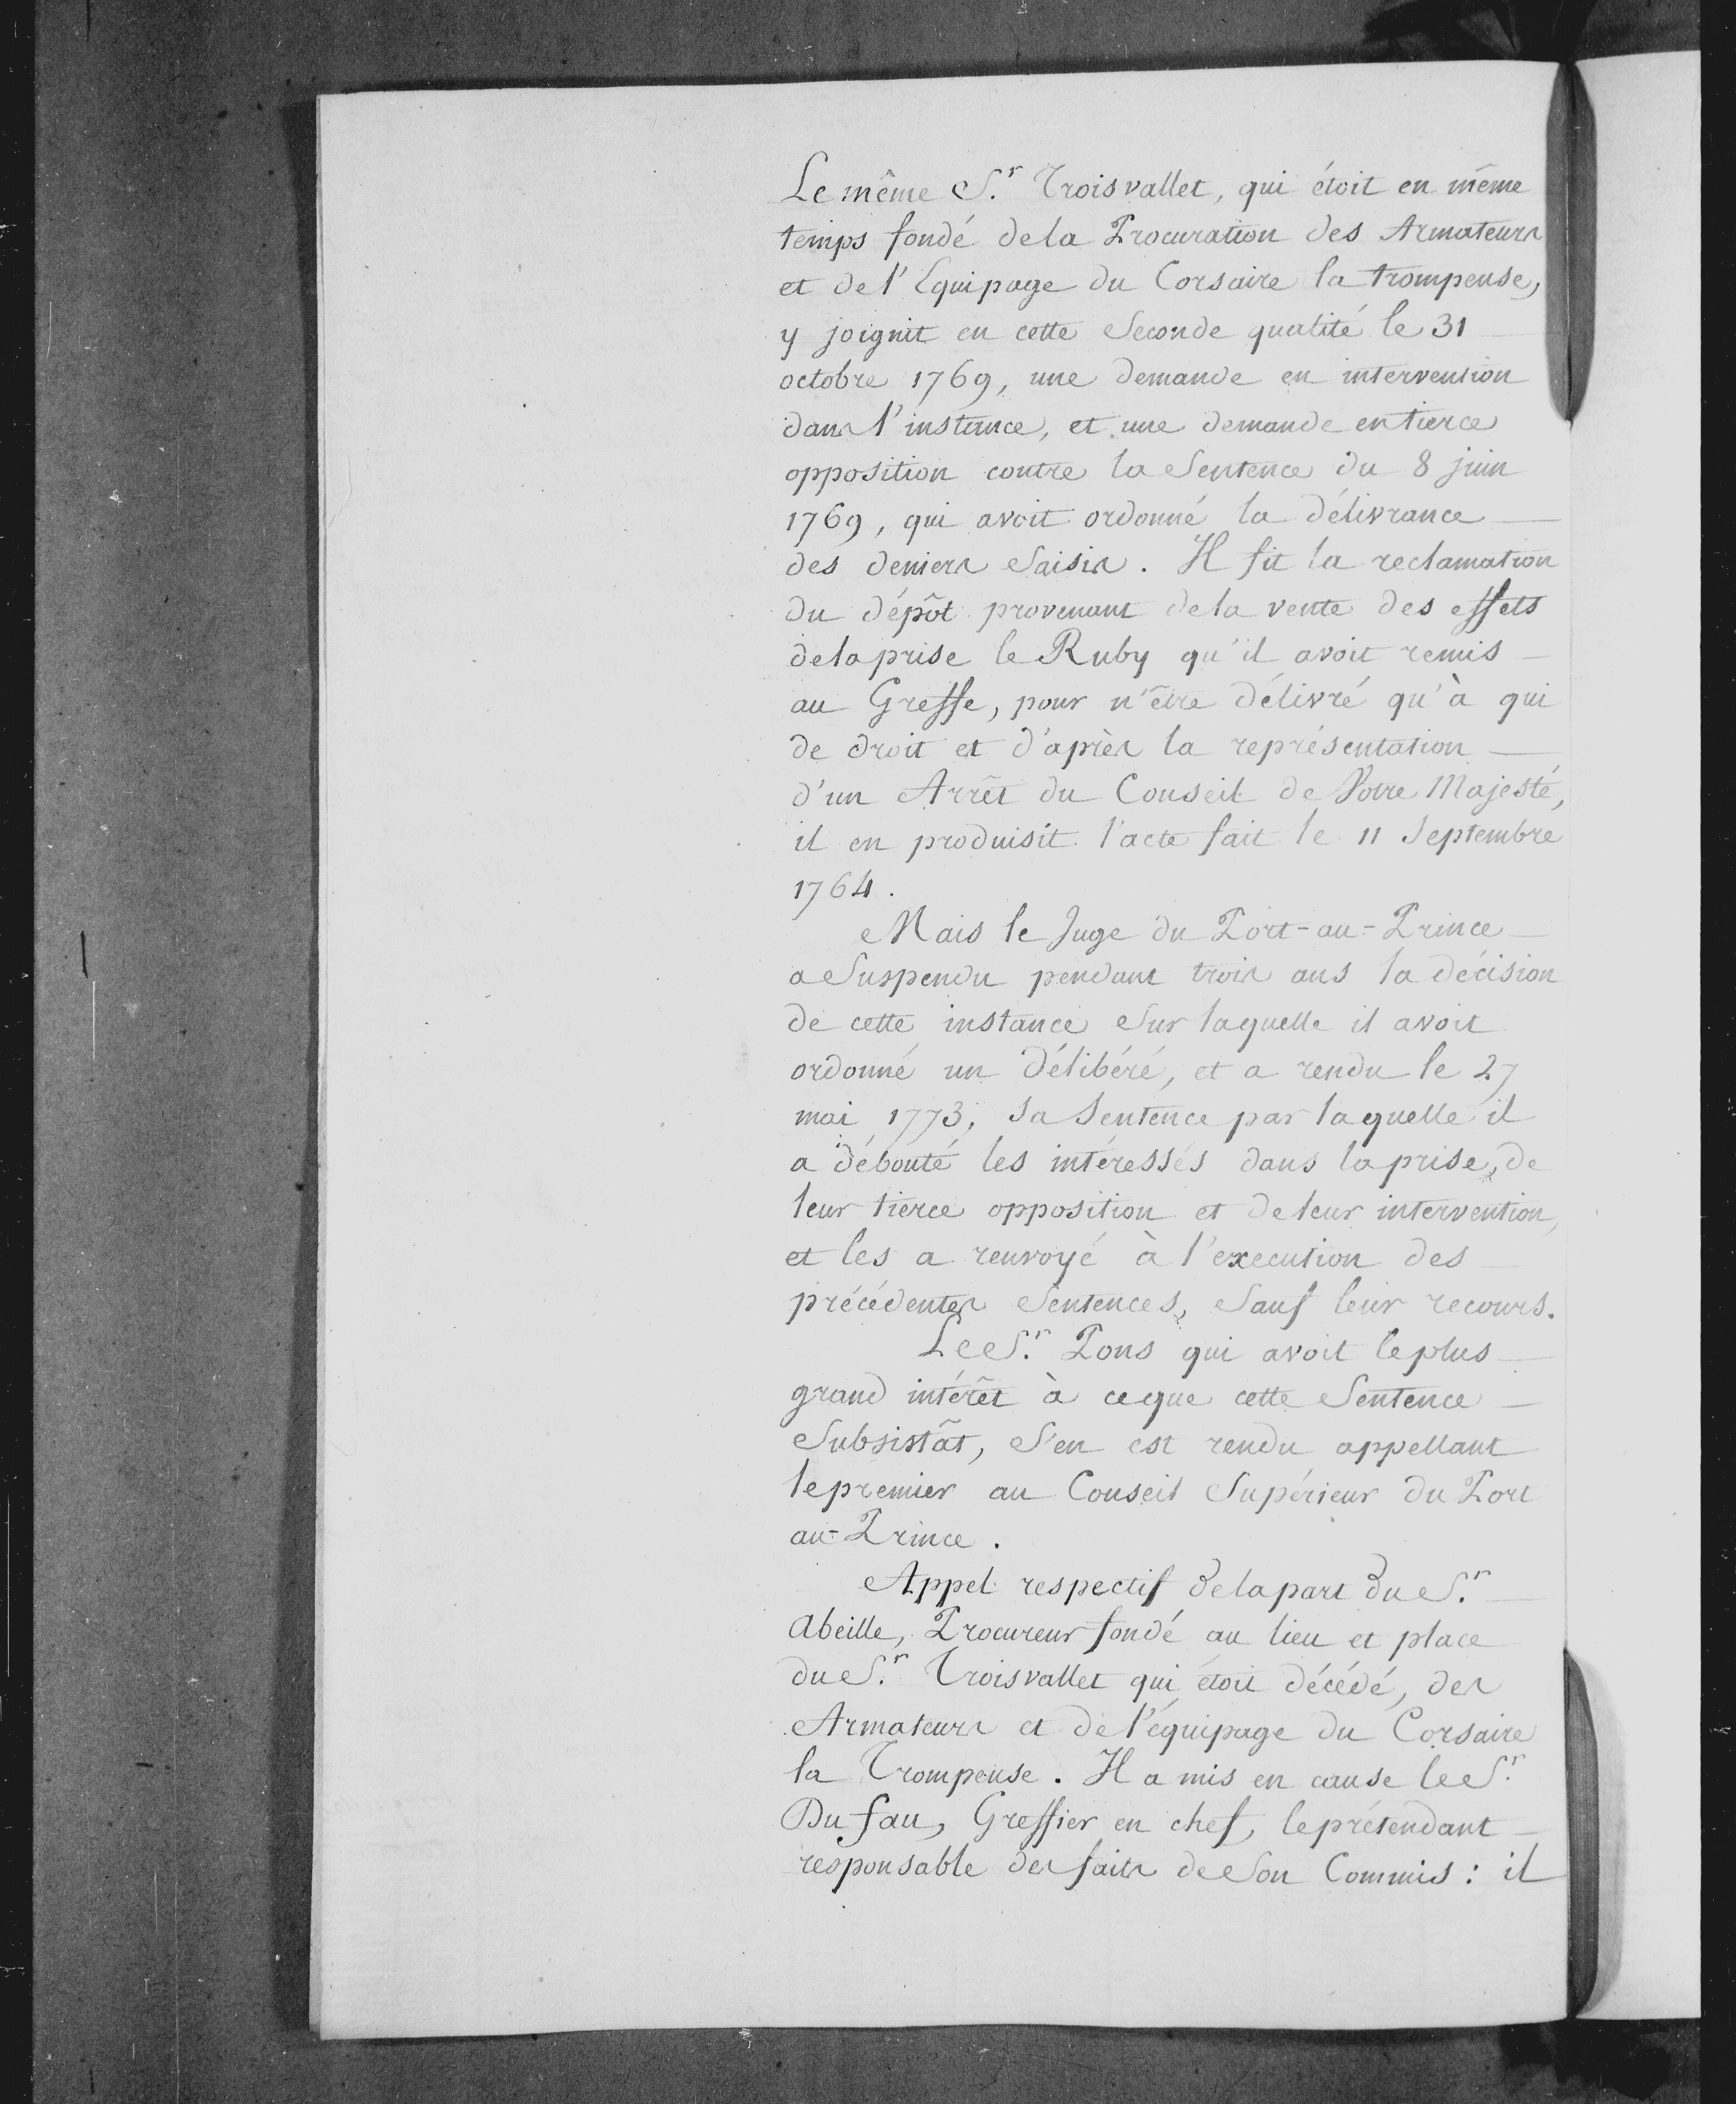 Le même S.r Troisvallet, qui étoit en même
temps fondé de la Procuration des Armateurs
et de l'Equipage du Corsaire la trompeuse,
y joignit en cette Seconde qualité le 31
octobre 1769, une demande en intervention
dans l'instance, et une demande en tierce
opposition contre la Sentence du 8 juin
1769, qui avoit ordonné la délivrance
des deniers Saisis. Il fit la reclamation
du dépôt provenant de la vente des effets
de la prise le Ruby qu'il avoit remis
au Greffe, pour n'être délivré qu'à qui
de droit et d'après la représentation
d'un Arrêt du Conseil de Votre Majesté,
il en produisit l'acte fait le 11 Septembre
1764.
Mais le Juge du Port-au-Prince
a Suspendu pendant trois ans la décision
de cette instance Sur laquelle il avoit
ordonné un Délibéré, et a rendu le 27
mai 1773, Sa Sentence par laquelle il
a débouté les intéressés dans la prise, de
leur tierce opposition et de leur intervention,
et les a renvoyé à l'execution des
précédentes Sentences, Sauf leur recours.
Le S.r Pons qui avoit le plus
grand intérêt à ce que cette Sentence
Subsistât, S'en est rendu appellant
le premier au Conseil Supérieur du Port
au-Prince.
Appel respectif de la part du S.r
Abeille, Procureur fondé au lieu et place
du S.r Troisvallet qui étoit décédé, des
Armateurs et de l'équipage du Corsaire
la Trompeuse. Il a mis en cause le S.r
Dufau, Greffier en chef, le prétendant
responsable des faits de Son Commis : il